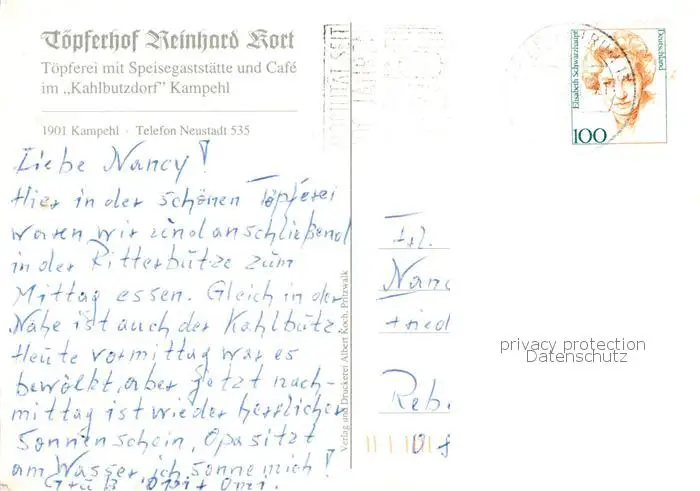 Töpferhof Reinhard Kort
Töpferei mit Speisegaststätte und Café
im „Kahlbutzdorf" Kampehl
1901 Kampehl · Telefon Neustadt 535
Liebe Nancy!
Hier in der schönen Töpferei
waren wir und anschließend
in der Ritterbutze zum
Mittag essen. Gleich in der
Nähe ist auch der Kahlbutz.
Heute vormittag war es
bewölkt, aber jetzt nach-
mittag ist wieder herrlicher
Sonnenschein, Opa sitzt
am Wasser, ich sonne mich!
Gruß Omi + Opi.
Verlag und Druckerei Albert Koch, Pritzwalk
Elisabeth Schwarzhaupt
Deutschland
100
Frl.
Nanc
Fried
Reb
privacy protection
Datenschutz